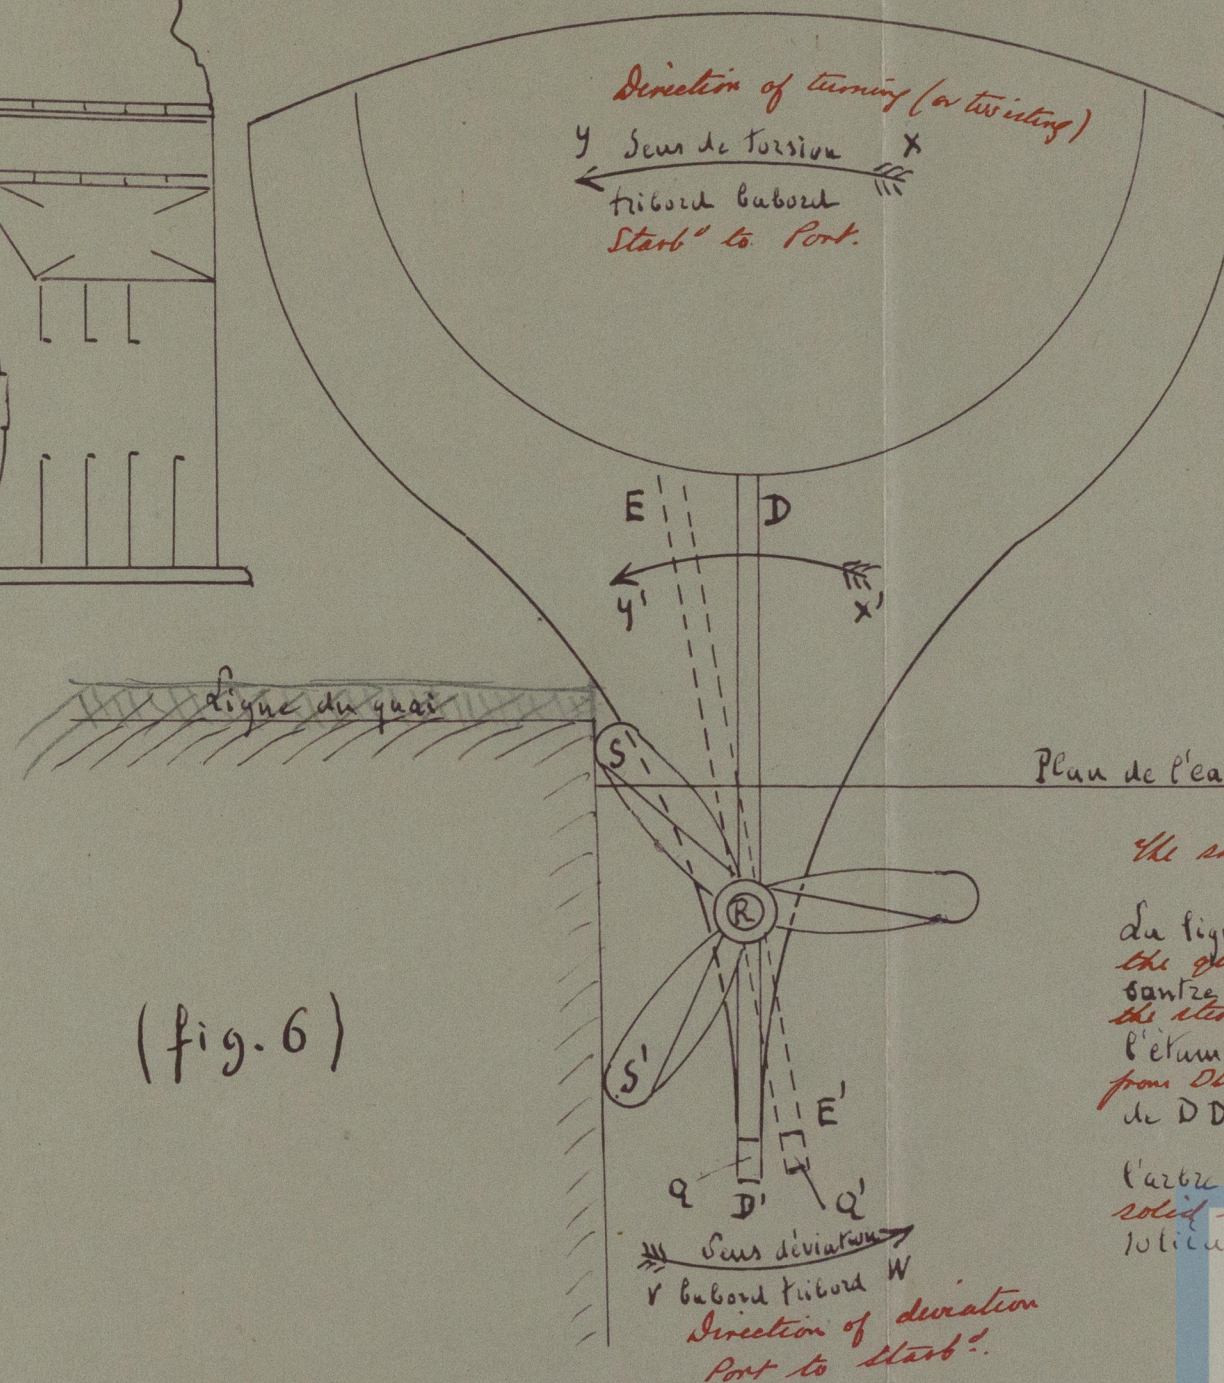 Direction of turning (or twisting)
y Sens de torsion x
tribord babord
Starbd to Port.
E D
y' x'
Ligne du quai
S
Plan de l'ea
The s
R
La lig
the q
santre
the ste
(fig. 6)
l'étam
S'
from D
E'
de D D
l'arbre
Q D' Q'
solid
Sens déviation
V babord tribord W
Direction of deviation
Port to Starbd.